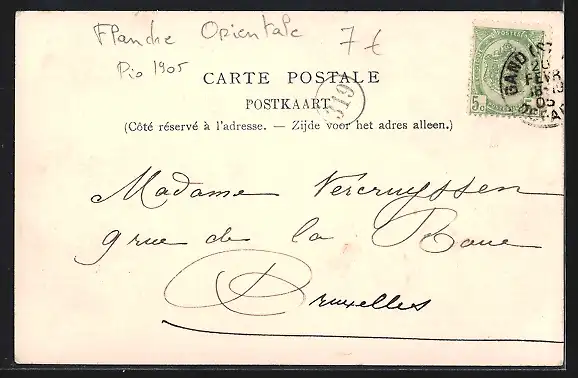 Flandre Orientale 7 €
Pio 1905
CARTE POSTALE
POSTKAART
319
(Côté réservé à l'adresse. — Zijde voor het adres alleen.)
GAND (
20
FEVR
05
DEPAR
5c 5c
Madame Vercruyssen
9 rue de la Roue
Bruxelles